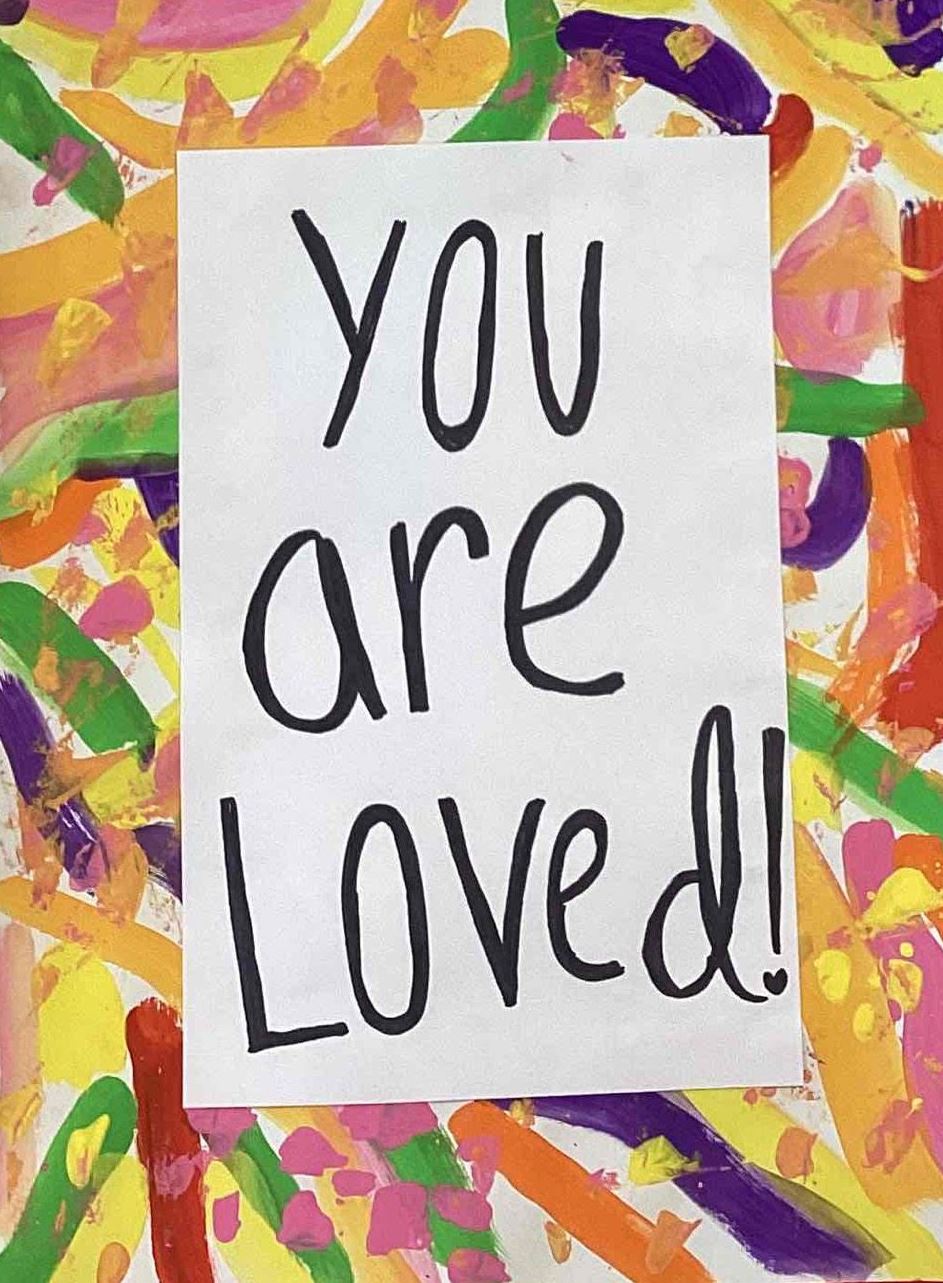 YOU
are
Loved!